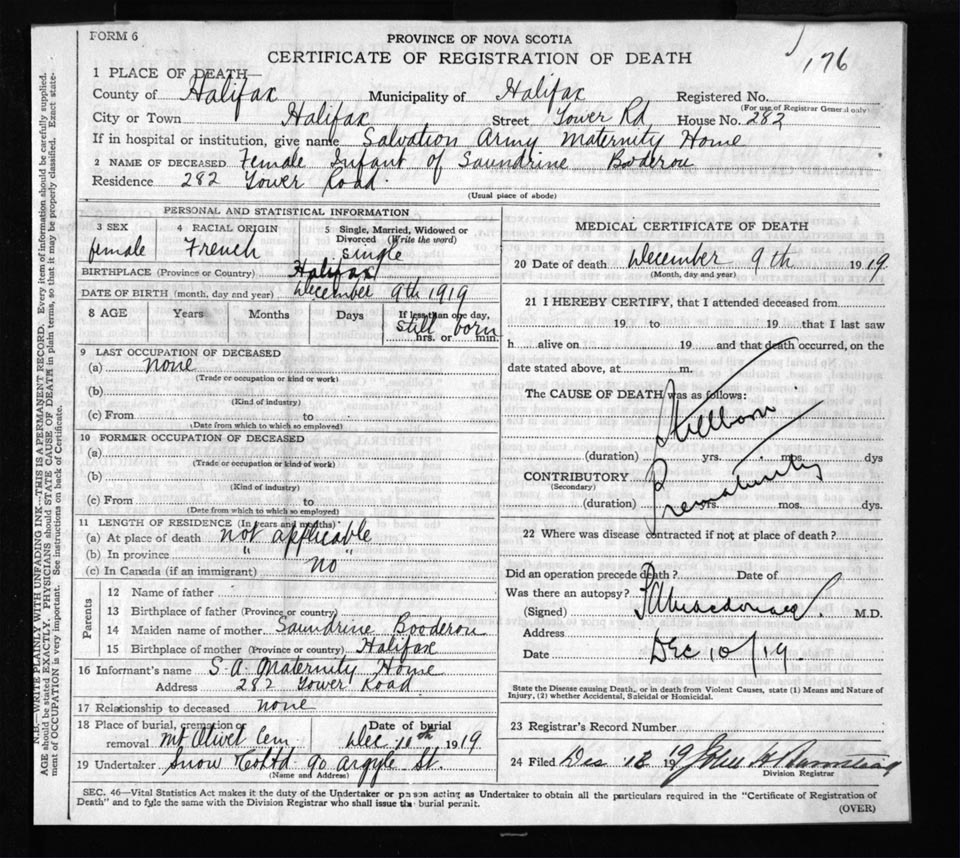 FORM 6
PROVINCE OF NOVA SCOTIA
CERTIFICATE OF REGISTRATION OF DEATH
176
1 PLACE OF DEATH—
County of Halifax Municipality of Halifax Registered No.
(For use of Registrar General only)
City or Town Halifax Street Tower Rd House No. 282
If in hospital or institution, give name Salvation Army Maternity Home
2 NAME OF DECEASED Female Infant of Saundrine Booderou
Residence 282 Tower Road.
(Usual place of abode)
PERSONAL AND STATISTICAL INFORMATION
3 SEX 4 RACIAL ORIGIN 5 Single, Married, Widowed or Divorced (Write the word)
female French single
BIRTHPLACE (Province or Country) Halifax
DATE OF BIRTH (month, day and year) December 9th 1919
8 AGE Years Months Days If less than one day,
still born
hrs. or min.
9 LAST OCCUPATION OF DECEASED
(a) none
(Trade or occupation or kind or work)
(b)
(Kind of industry)
(c) From to
(Date from which to which so employed)
10 FORMER OCCUPATION OF DECEASED
(a)
(Trade or occupation or kind of work)
(b)
(Kind of industry)
(c) From to
(Date from which to which so employed)
11 LENGTH OF RESIDENCE (In years and months)
(a) At place of death not applicable
(b) In province " "
(c) In Canada (if an immigrant) no
Parents
12 Name of father
13 Birthplace of father (Province or country)
14 Maiden name of mother Saundrine Booderou
15 Birthplace of mother (Province or country) Halifax
16 Informant's name S.A. Maternity Home
Address 282 Tower Road
17 Relationship to deceased none
18 Place of burial, cremation or removal Mt Olivet Cem Date of burial Dec 10th 1919
19 Undertaker Snow & Co Ltd 90 Argyle St.
(Name and Address)
MEDICAL CERTIFICATE OF DEATH
20 Date of death December 9th 1919
(Month, day and year)
21 I HEREBY CERTIFY, that I attended deceased from
19 to 19 that I last saw
h alive on 19 and that death occurred, on the
date stated above, at m.
The CAUSE OF DEATH was as follows:
Stillborn
(duration) yrs. mos. dys
CONTRIBUTORY Prematurity
(Secondary)
(duration) yrs. mos. dys.
22 Where was disease contracted if not at place of death?
Did an operation precede death? Date of
Was there an autopsy?
(Signed) Macdonald M.D.
Address
Date Dec 10/19.
State the Disease causing Death, or in death from Violent Causes, state (1) Means and Nature of
Injury, (2) whether Accidental, Suicidal or Homicidal.
23 Registrar's Record Number
24 Filed Dec 1919 John H
Division Registrar
SEC. 46—Vital Statistics Act makes it the duty of the Undertaker or person acting as Undertaker to obtain all the particulars required in the "Certificate of Registration of
Death" and to fyle the same with the Division Registrar who shall issue the burial permit.
(OVER)
N.B.—WRITE PLAINLY WITH UNFADING INK—THIS IS A PERMANENT RECORD. Every item of information should be carefully supplied.
AGE should be stated EXACTLY. PHYSICIANS should STATE CAUSE OF DEATH in plain terms, so that it may be properly classified. Exact state-
ment of OCCUPATION is very important. See instructions on back of Certificate.